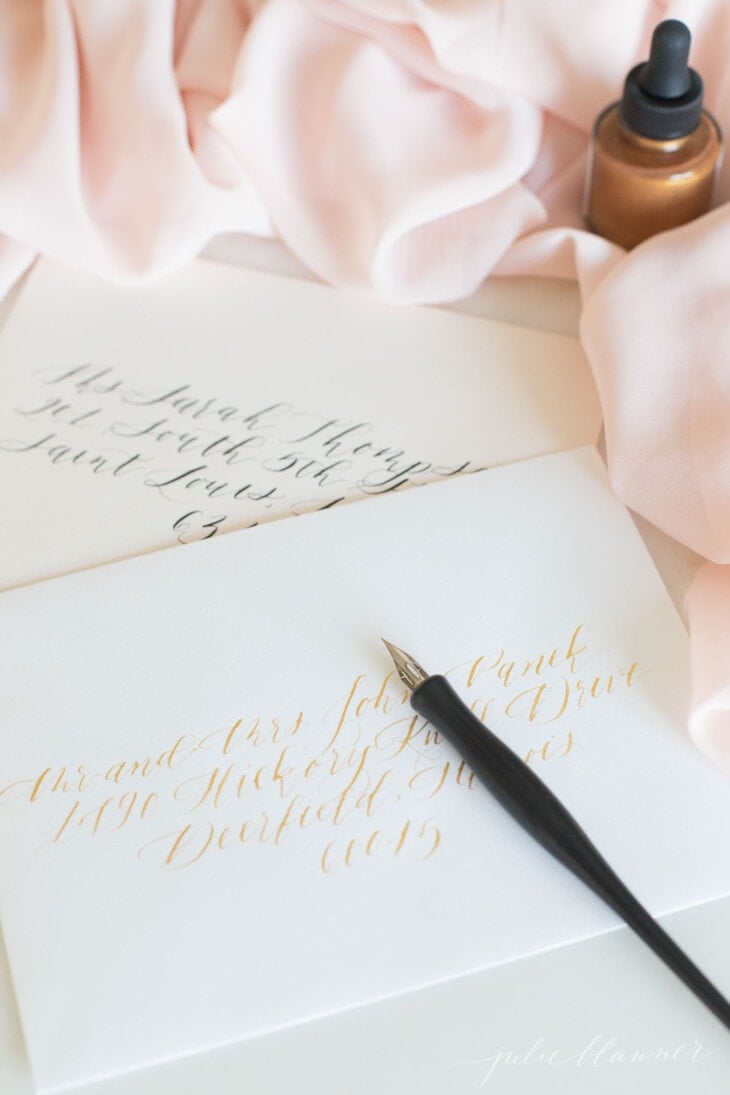 Ms Sarah Thomps
201 South 5th St
Saint Louis,
63
Mr and Mrs. John Panek
1490 Hickory Knoll Drive
Deerfield, Illinois
60015
julie blanner